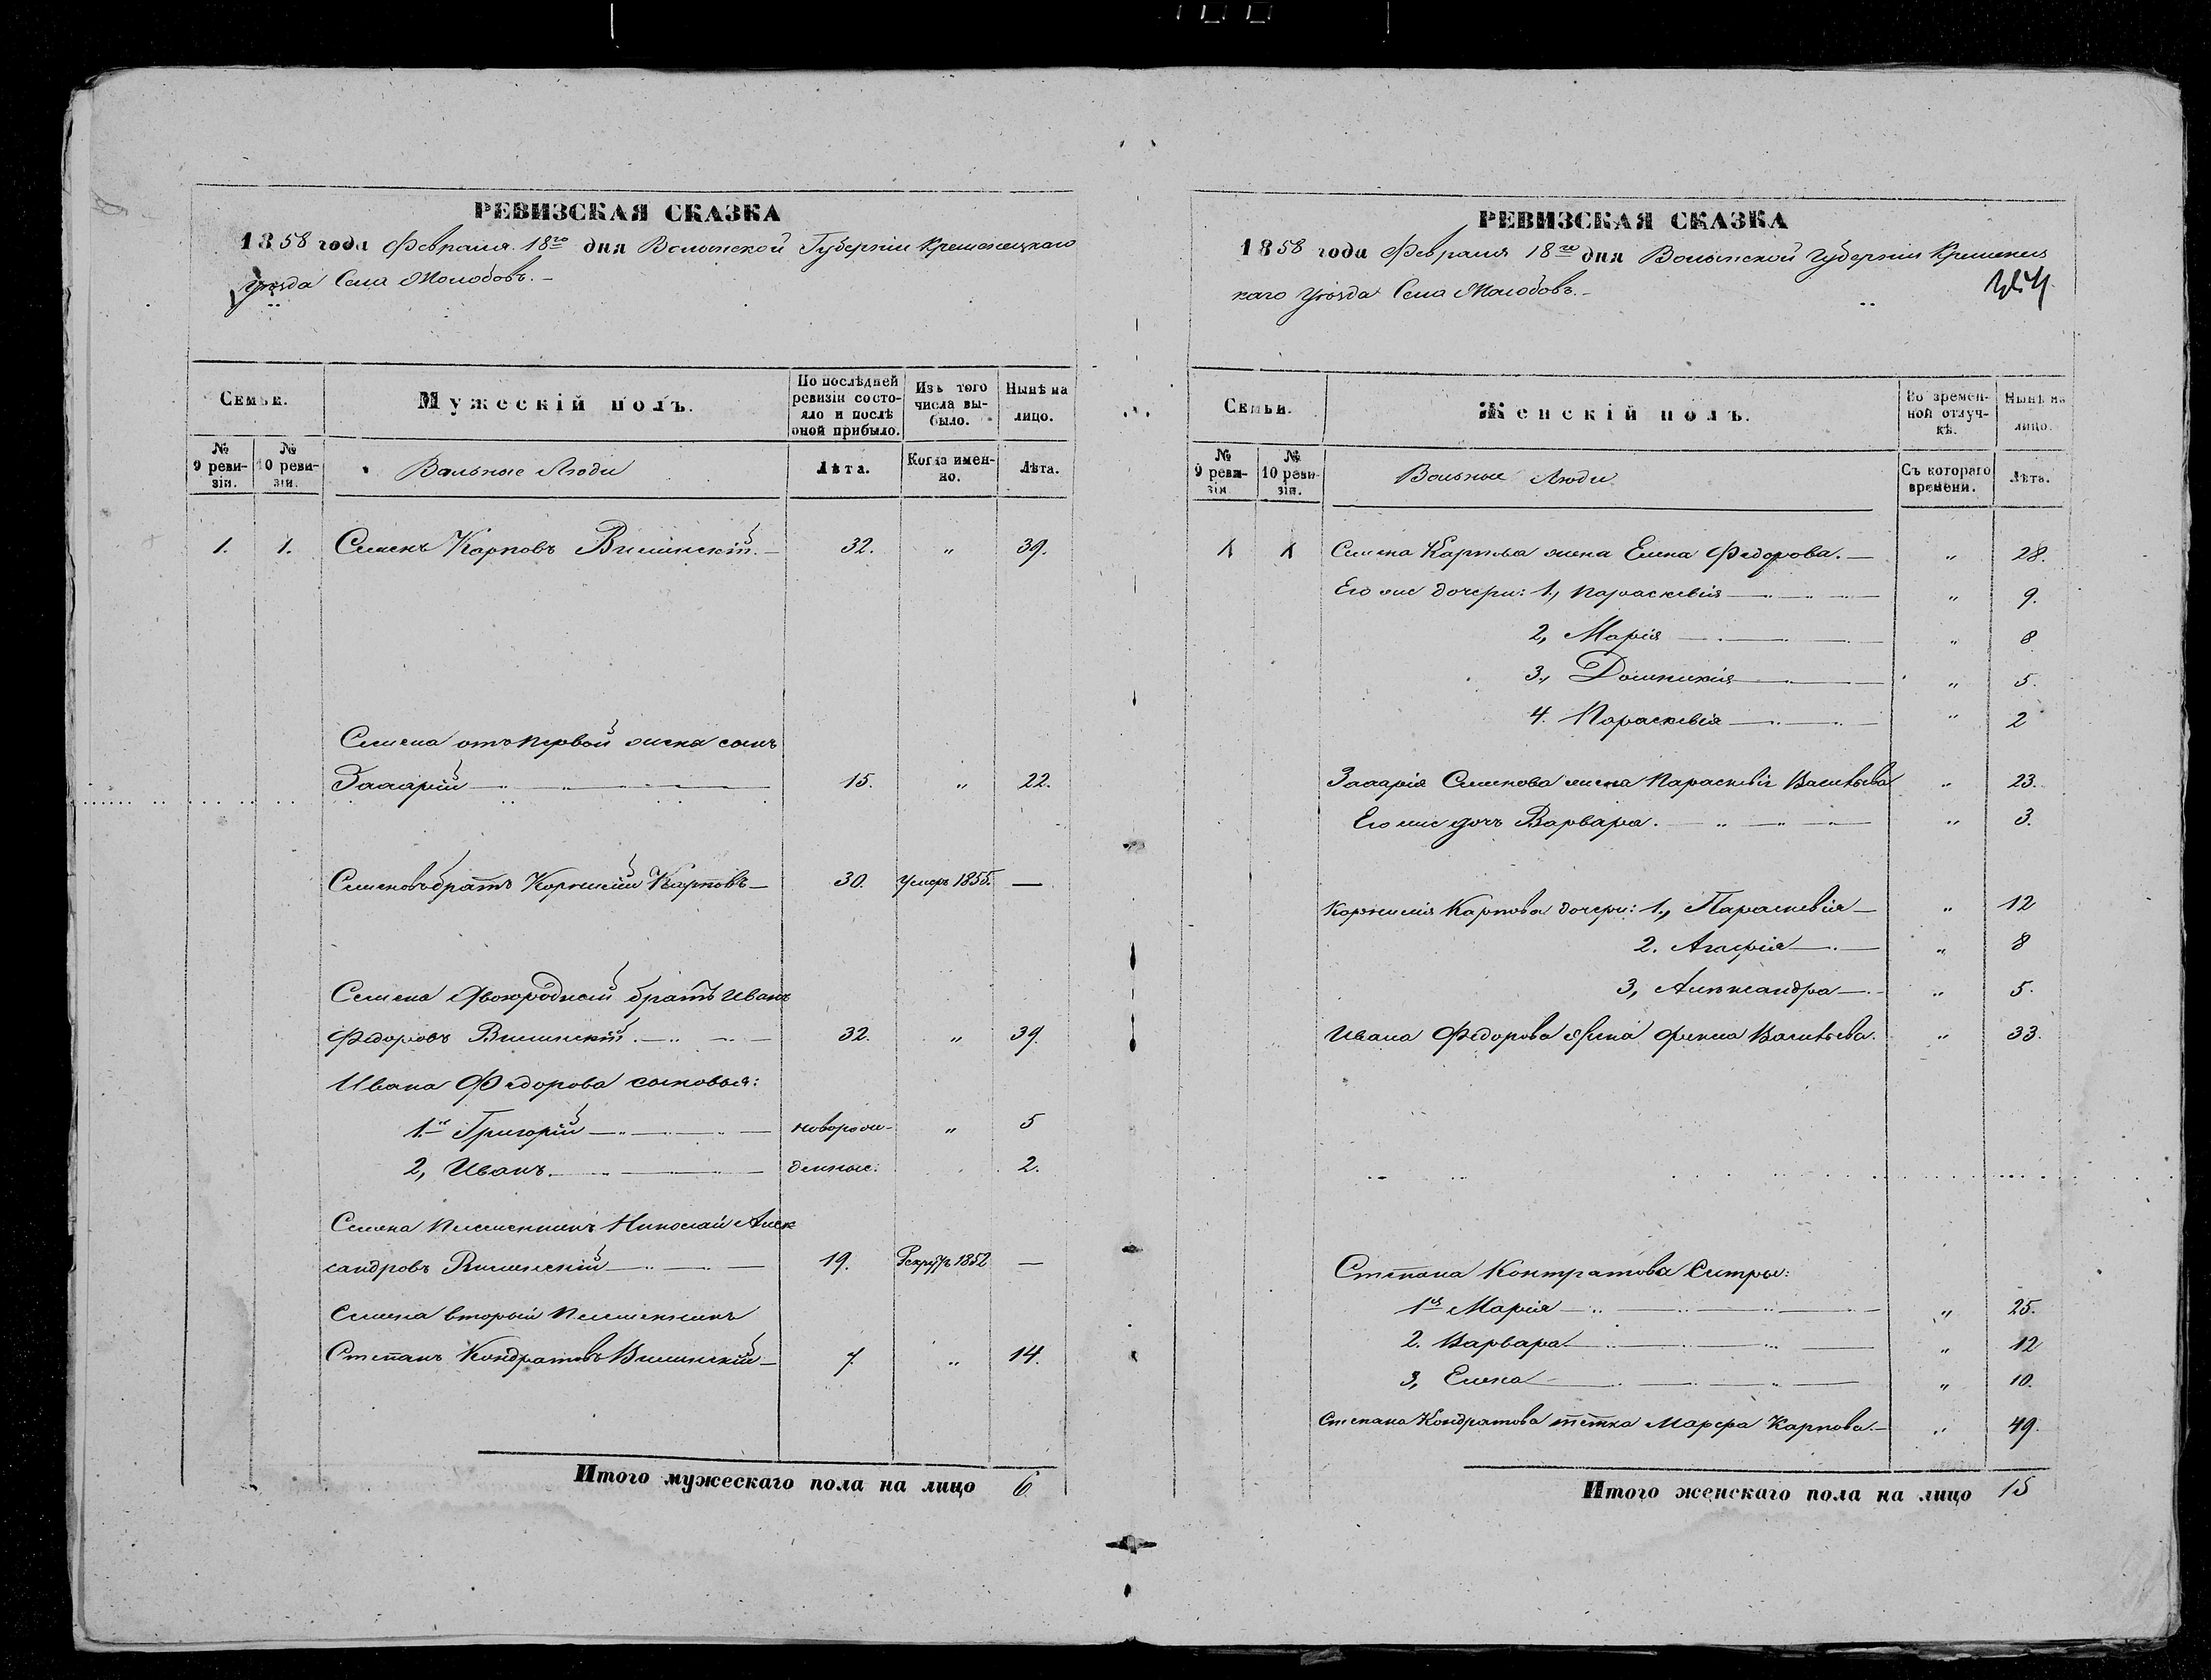 РЕВИЗСКАЯ СКАЗКА
1858 года Февраля 18го дня Волынской Губернiи Кременецкаго
Уѣзда Села Молобовъ.
Семьи.
Мужескiй полъ.
По послѣдней ревизiи состояло и послѣ оной прибыло.
Изъ того числа выбыло.
Нынѣ на лицо.
№ 9 ревизiи.
№ 10 ревизiи.
Вольные Люди
Лѣта.
Когда именно.
Лѣта.
1. 1. Семенъ Карповъ Вишинскiй.— 32. " 39.
Семена отъ первой жены сынъ
Захарiй — 15. " 22.
Семеновъ братъ Корнилiй Карповъ— 30. Умеръ 1855. —
Семена двоюродный братъ Иванъ
Федоровъ Вишинскiй.— 32. " 39.
Ивана Федорова сыновья:
1й Григорiй — новорож- " 5
2, Иванъ. — денные: 2.
Семена племянникъ Николай Алек
сандровъ Вишинскiй — 19. Рекрутъ 1852 —
Семена вторый племянникъ
Степанъ Кондратовъ Вишинскiй — 7. " 14.
Итого мужескаго пола на лицо 6
РЕВИЗСКАЯ СКАЗКА
1858 года Февраля 18го дня Волынской Губернiи Кременец
каго Уѣзда Села Молобовъ.—
Семьи.
Женскiй полъ.
Во временной отлучкѣ.
Нынѣ на лицо.
№ 9 ревизiи.
№ 10 ревизiи.
Вольные Люди
Съ котораго времени.
Лѣта.
1 1 Семена Карпова жена Елена Федорова.— " 28.
Его же дочери: 1, Параскевiя — " 9.
2, Марiя — " 8
3, Домникiя — " 5.
4. Параскевiя — " 2
Захарiя Семенова жена Параскевiя Васильева " 23.
Его же дочъ Варвара. — " 3.
Корнилiя Карпова дочери: 1, Параскевiя — " 12
2. Агафiя — " 8
3, Александра — " 5.
Ивана Федорова жена Фекла Васильева. " 33.
Степана Контратова Сестры:
1я Марiя — " 25.
2. Варвара — " 12
3, Елена — " 10.
Степана Кондратова тетка Марфа Карпова.— " 49.
Итого женскаго пола на лицо 15